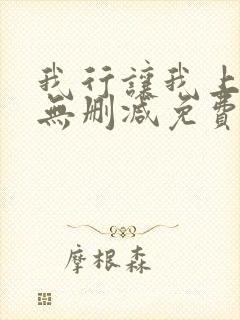 我行讓我上
無刪減免費
摩根森